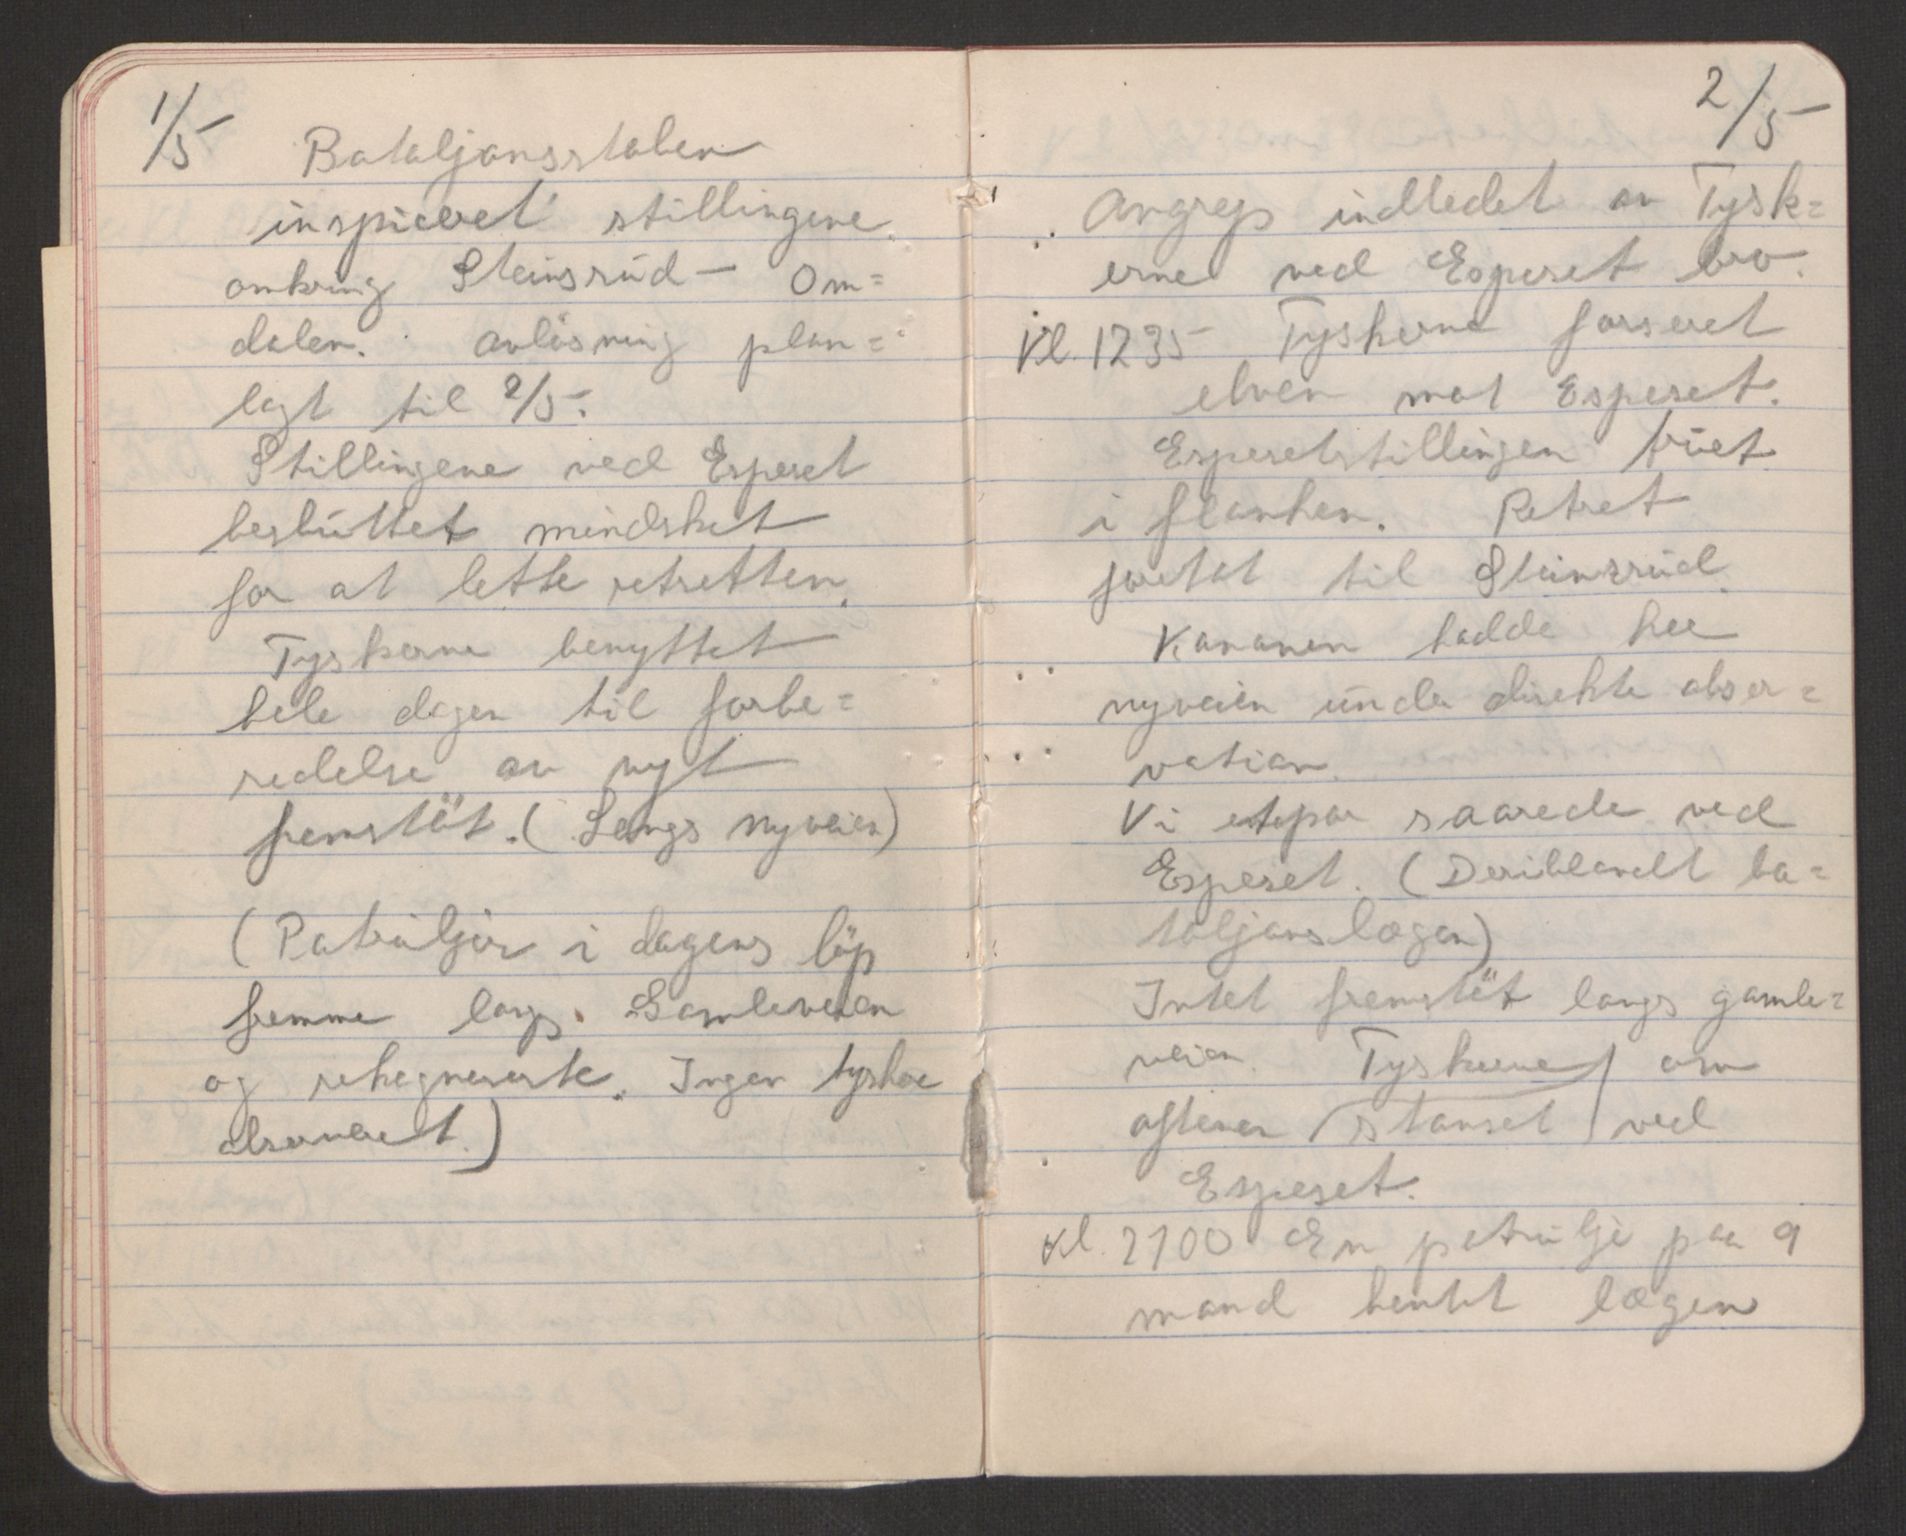 1/5
Bataljonsstaben
inspiceret stillingene
omkring Steinsrud - Om=
dalen. Avløsning plan=
lagt til 2/5.
Stillingene ved Esperet
besluttet mindsket
for at lette retretten.
Tyskerne benyttet
hele dagen til forbe=
redelse av nyt
fremstöt. (Langs nyveien)
(Patruljer i dagens löp
fremme langs Gamleveien
og rekognoserte. Ingen tyskere
observeret.)
2/5
Angrep indledet av Tysk=
erne ved Esperet bro.
Kl. 1235 Tyskerne forseret
elven mot Esperet.
Esperetstillingen truet
i flanken. Retret
foretat til Steinsrud.
Kanonen hadde hele
nyveien under direkte obser=
vation.
Vi etpar saarede ved
Esperet. (Deriblandt ba=
taljonslægen)
Intet fremstöt langs gamle=
veien. Tyskerne om
aftenen stanset ved
Esperet.
Kl. 2100 En patrulje paa 9
mand hentet lægen